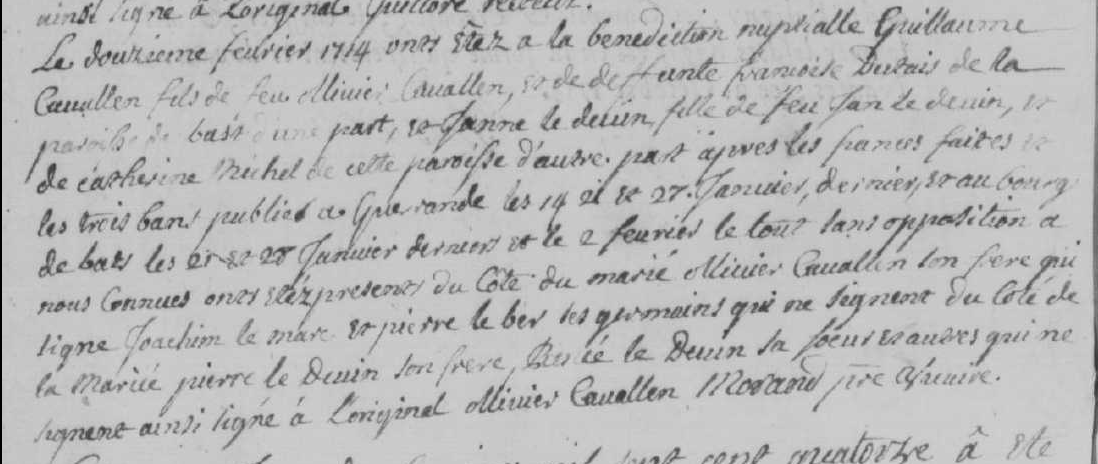 ainsi signé â L'original Guillore recteur.
Le douzieme fevrier 1714 onts Etez a la benediction nuptialle Guillaume
Cavallen fils de feu ollivier Cavallen, et de deffunte francoise Durais de la
paroisse de bats d'une part, et Janne le devin fille de feu Jan le devin, et
de catherine Michel de cette paroisse d'autre part apres les fiances faites et
les trois bans publies a Guerrande les 14 21 et 27 Janvier, dernier, et au bourg
de bats les 21 et 28 Janvier derniers et le 2 fevrier le tout sans opposition a
nous Connues onts etéz presents du Côté du marié ollivier Cavallen son frere qui
signe Joachim le marc et pierre le ber ses germains qui ne signent du Côté de
la Mariée pierre le Devin son frere, Renée le Devin sa soeur et autres qui ne
signent ainsi signé à L'original ollivier Cavallen Morand pre vicaire.
sept cent quatorze â Ete